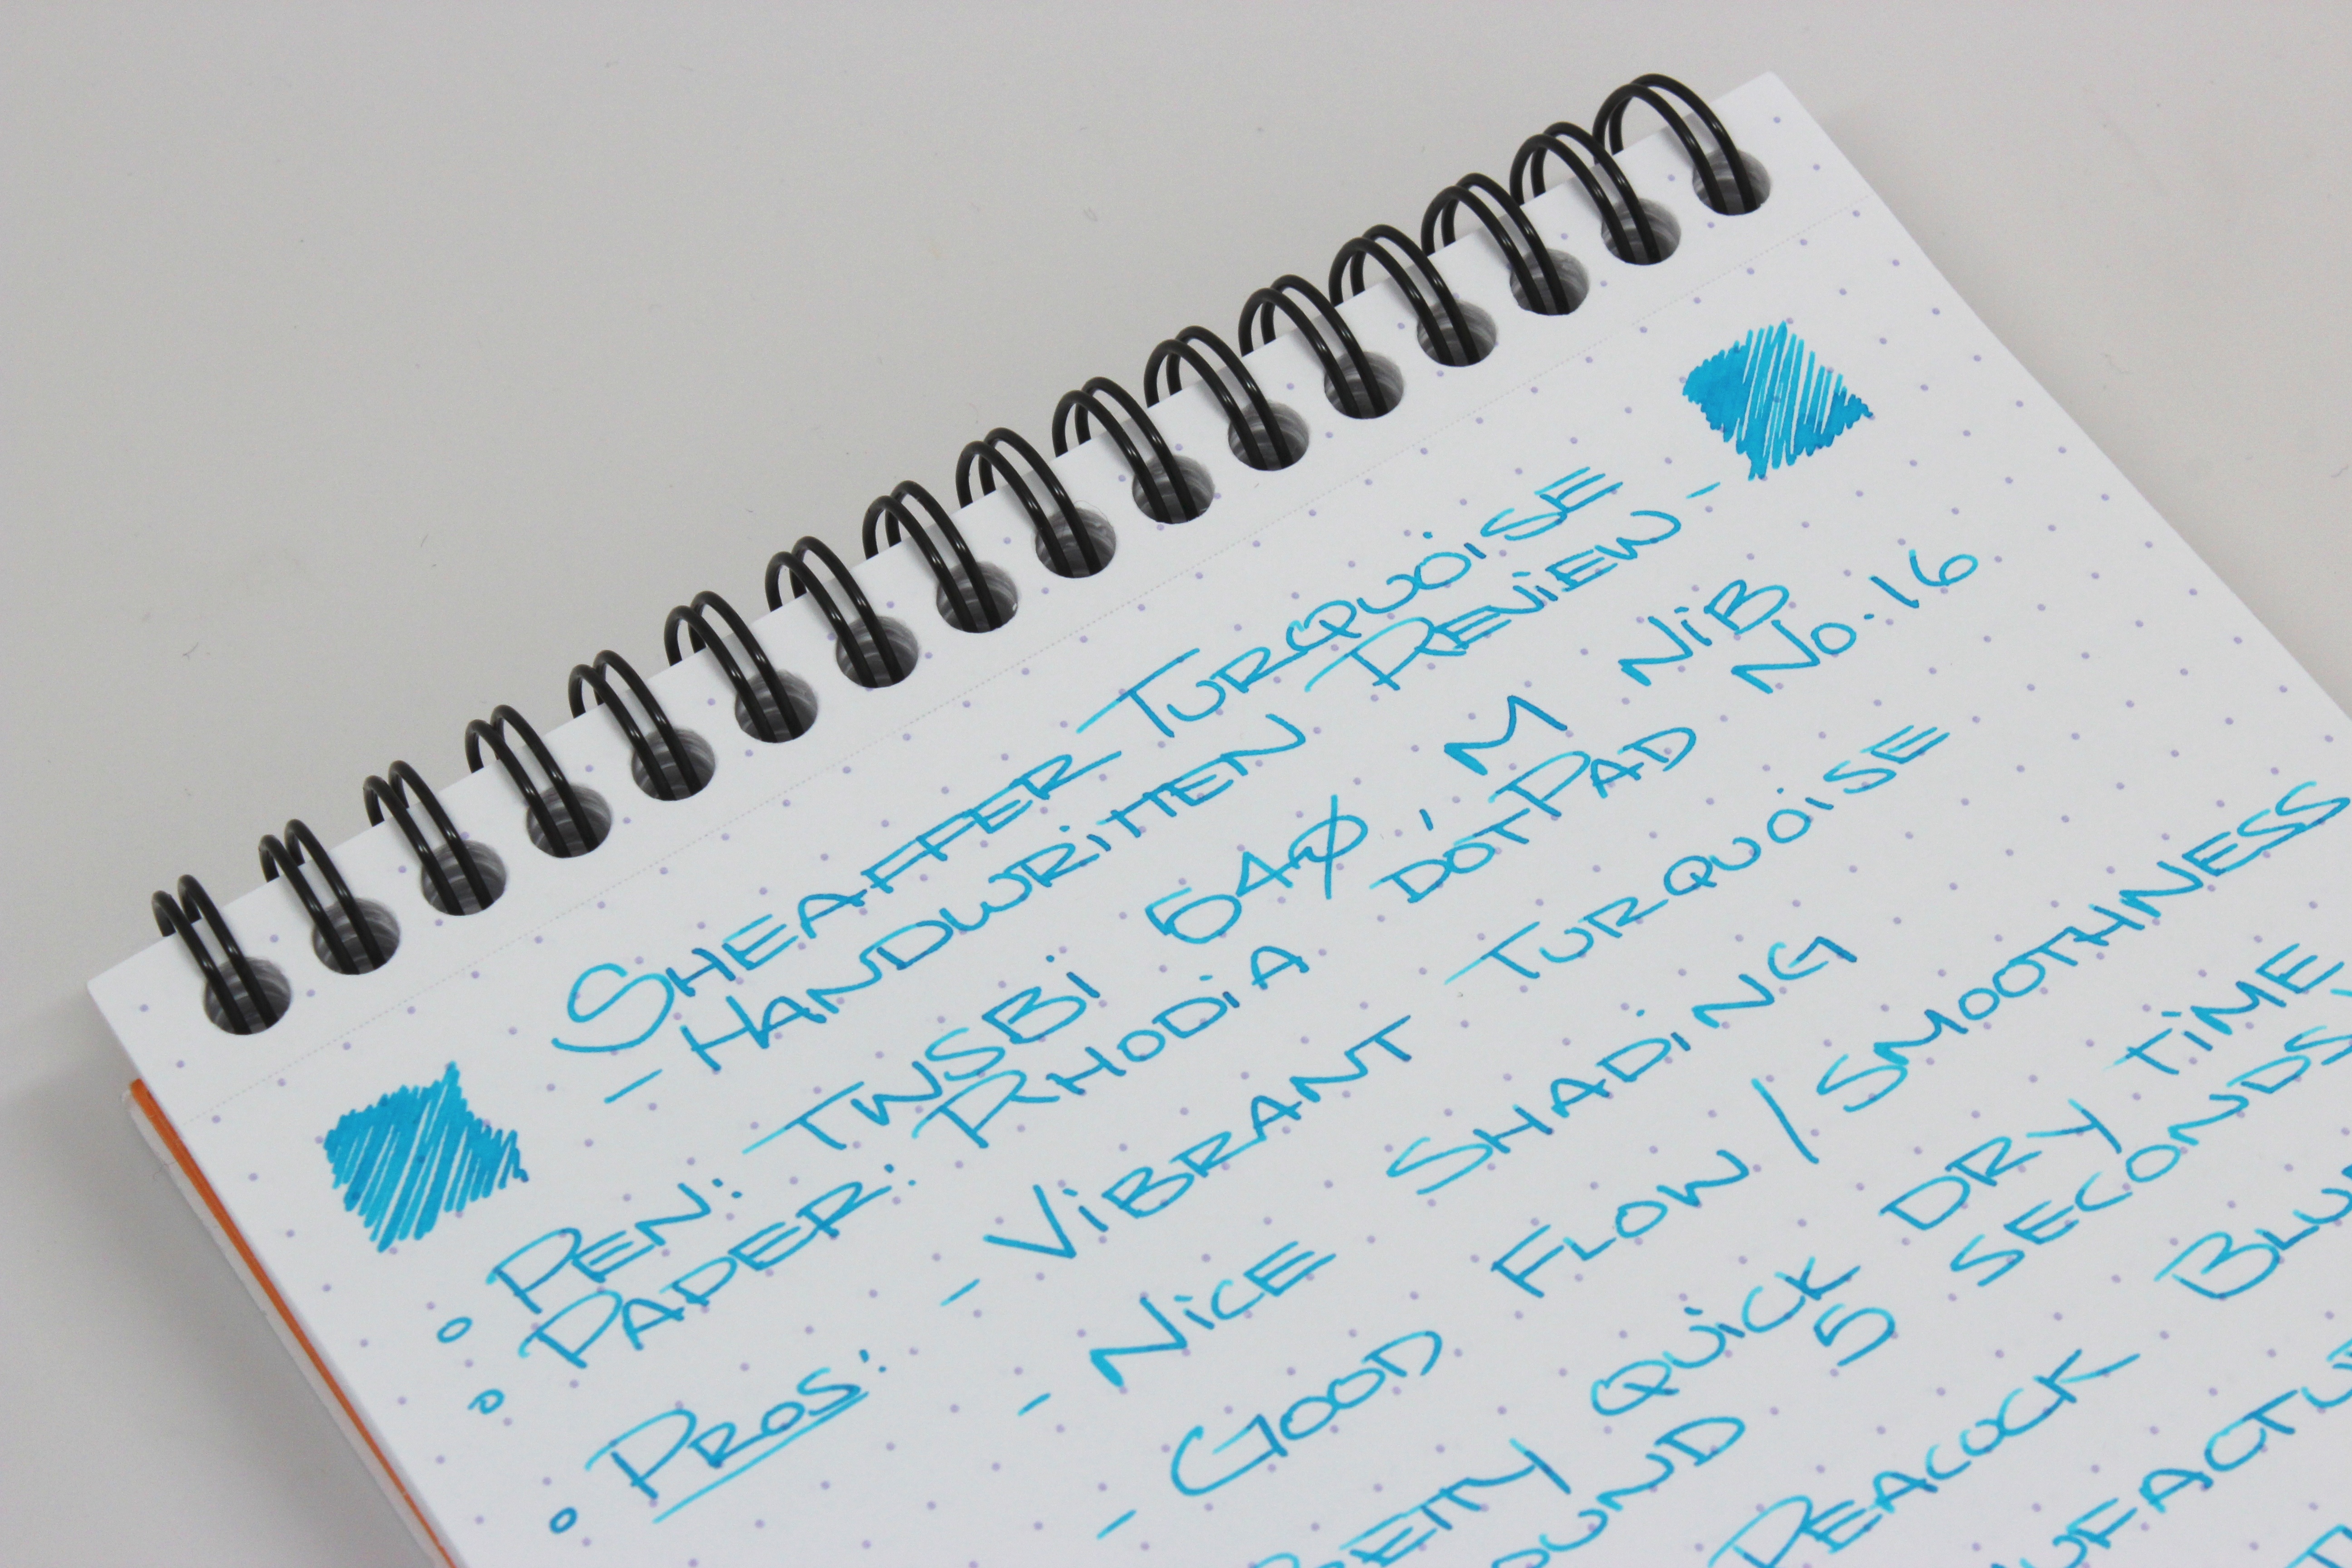 SHEAFFER TURQUOISE
- HANDWRITTEN REVIEW -
PEN: TWSBI 540, M NIB
PAPER: RHODIA DOTPAD NO. 16
PROS: - VIBRANT TURQUOISE
- NICE SHADING
- GOOD FLOW / SMOOTHNESS
QUICK DRY TIME
5 SECONDS
PEACOCK